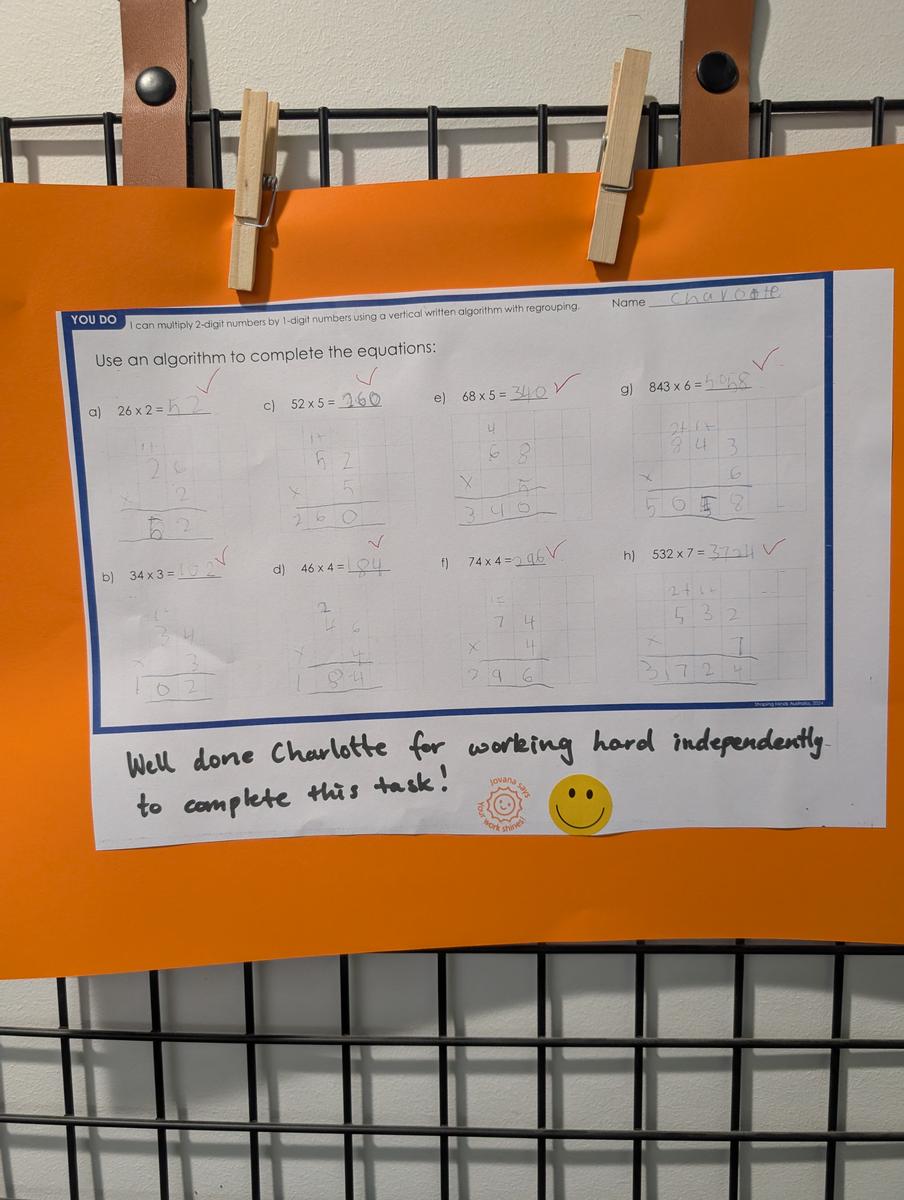 YOU DO I can multiply 2-digit numbers by 1-digit numbers using a vertical written algorithm with regrouping. Name Charlotte
Use an algorithm to complete the equations:
a) 26 x 2 = 52
1+
26
x 2
52
c) 52 x 5 = 260
1+
52
x 5
260
e) 68 x 5 = 340
4
68
x 5
340
g) 843 x 6 = 5058
2+ 1+
843
x 6
5058
b) 34 x 3 = 102
1
34
x 3
102
d) 46 x 4 = 184
2
46
x 4
184
f) 74 x 4 = 296
1
74
x 4
296
h) 532 x 7 = 3724
2+ 1+
532
x 7
3724
Shaping Minds Australia, 2024
Well done Charlotte for working hard independently
to complete this task!
Jovana says
Your work shines!